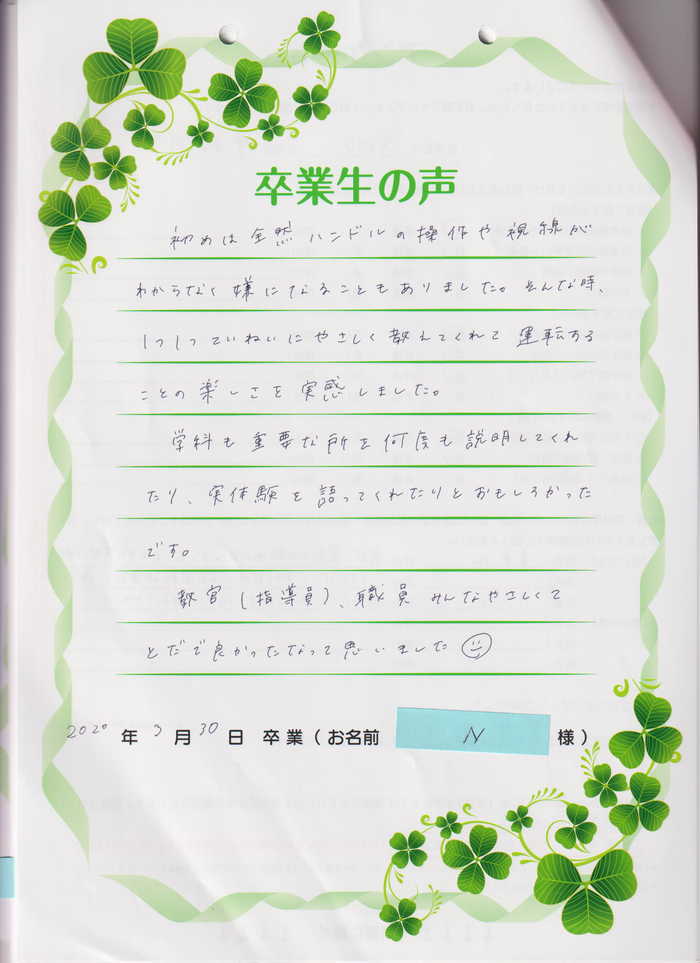 卒業生の声
初めは全然ハンドルの操作や視線が
わからなく嫌になることもありました。そんな時、
1つ1つていねいにやさしく教えてくれて運転する
ことの楽しさを実感しました。
学科も重要な所を何度も説明してくれ
たり、実体験を語ってくれたりとおもしろかった
です。
教官(指導員)、職員みんなやさしくて
とだで良かったなって思いました
2020年3月30日 卒業(お名前 N 様)